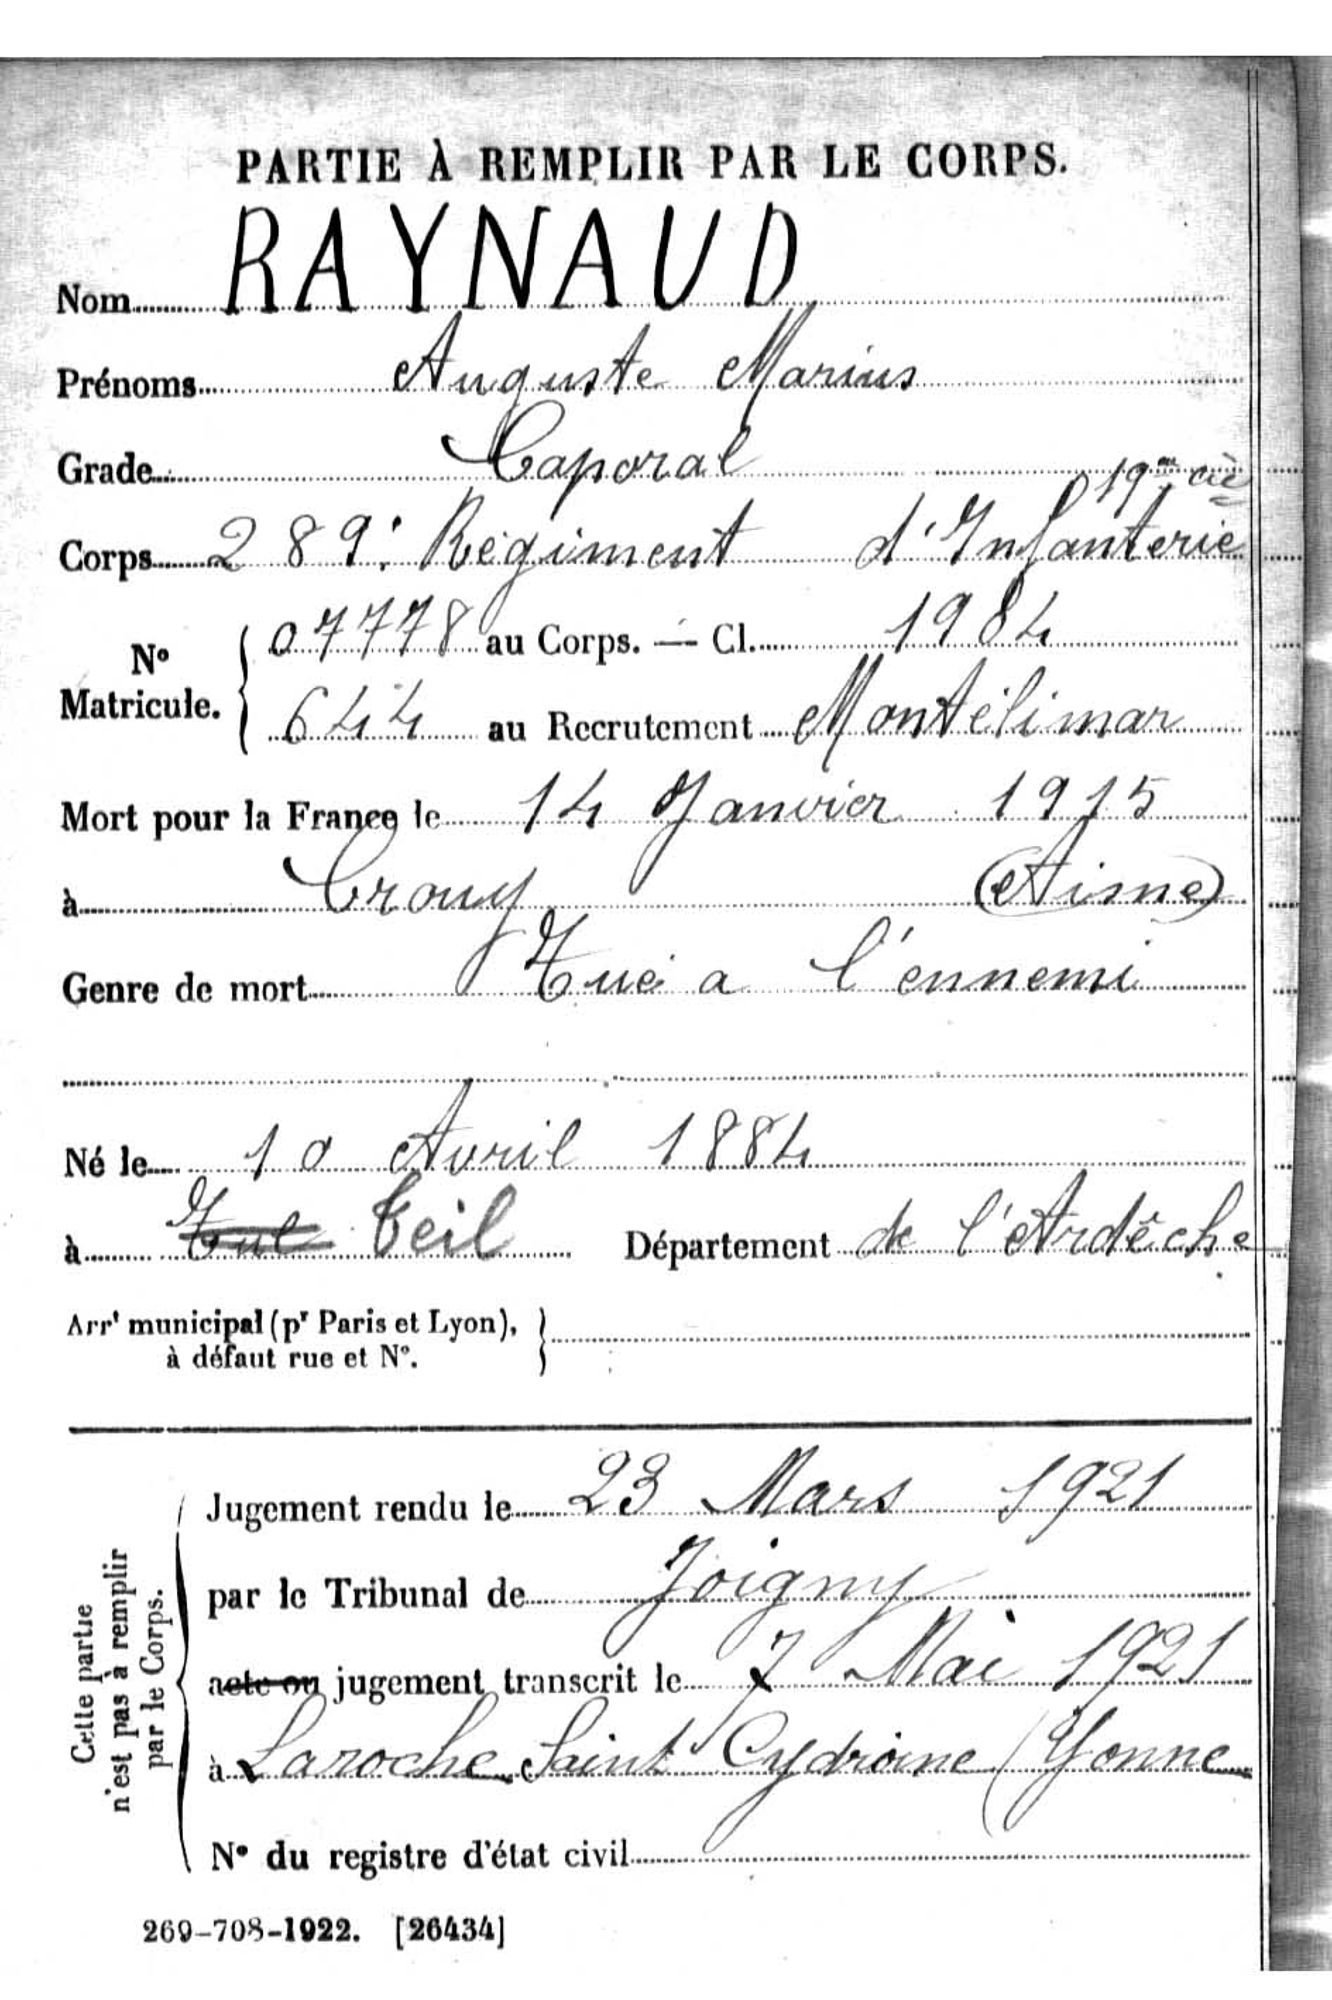 PARTIE À REMPLIR PAR LE CORPS.
Nom RAYNAUD
Prénoms Auguste Marius
Grade Caporal
19me Cie
Corps 289e Régiment d'Infanterie
N° Matricule. { 07778 au Corps. — Cl. 1904
644 au Recrutement Montélimar
Mort pour la France le 14 Janvier 1915
à Crouy (Aisne)
Genre de mort Tué a l'ennemi
Né le 10 Avril 1884
à Teil Département de l'Ardêche
Arrt municipal (pr Paris et Lyon), }
à défaut rue et N°.
Cette partie
n'est pas à remplir
par le Corps.
Jugement rendu le 23 Mars 1921
par le Tribunal de Joigny
acte ou jugement transcrit le 7 Mai 1921
à Laroche Saint Cydroine (Yonne
N° du registre d'état civil
269-708-1922. [26434]